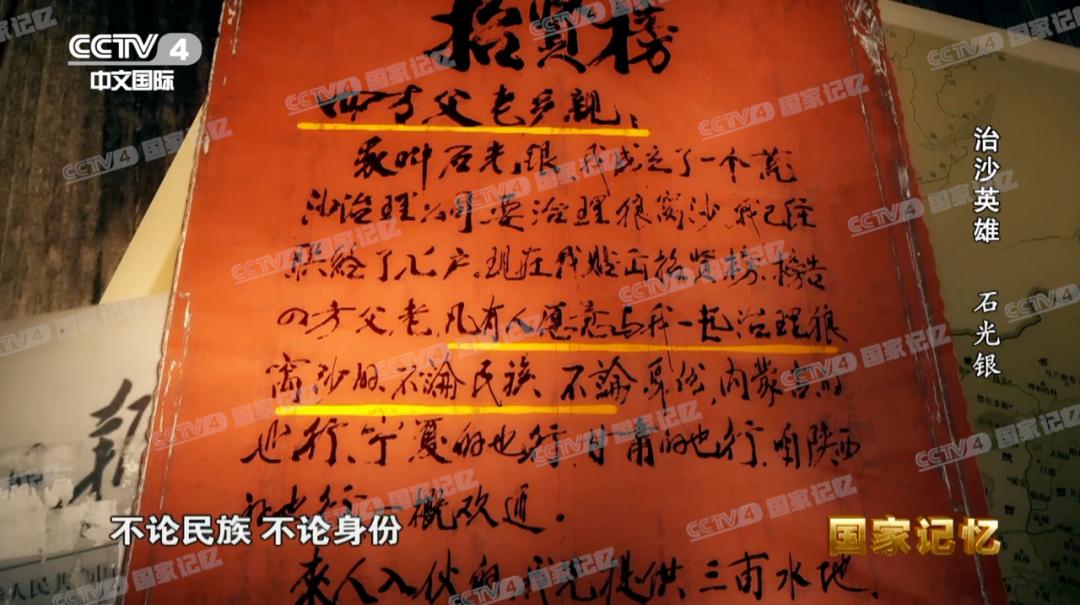 CCTV 4
中文国际
招贤榜
四方父老乡亲：
我叫石光银，我成立了一个荒
沙治理公司，要治理狼窝沙，我已经
联络了几户，现在我贴出招贤榜，榜告
四方父老，凡有人愿意与我一起治理狼
窝沙的，不論民族、不論身份，内蒙古的
也行，宁夏的也行，甘肃的也行，咱陕西
的也行，一概欢迎。
来人入伙的，提供三亩水地，
治沙英雄 石光银
不论民族 不论身份
国家记忆
CCTV4 国家记忆